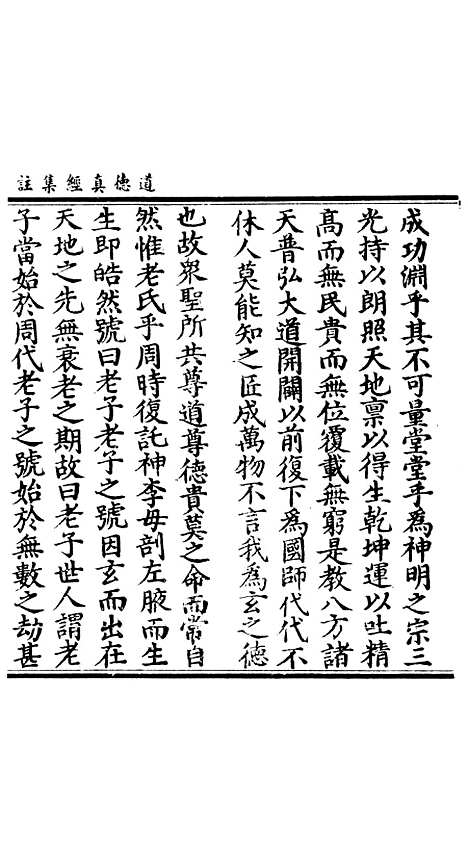 道德真經集註
成功淵乎其不可量堂堂乎為神明之宗三
光持以朗照天地禀以得生乾坤運以吐精
髙而無民貴而無位覆載無窮是教八方諸
天普弘大道開闢以前復下為國師代代不
休人莫能知之匠成萬物不言我為玄之德
也故衆聖所共尊道尊德貴莫之命而常自
然惟老氏乎周時復託神李母剖左腋而生
生即皓然號曰老子老子之號因玄而出在
天地之先無衰老之期故曰老子世人謂老
子當始於周代老子之號始於無數之劫甚